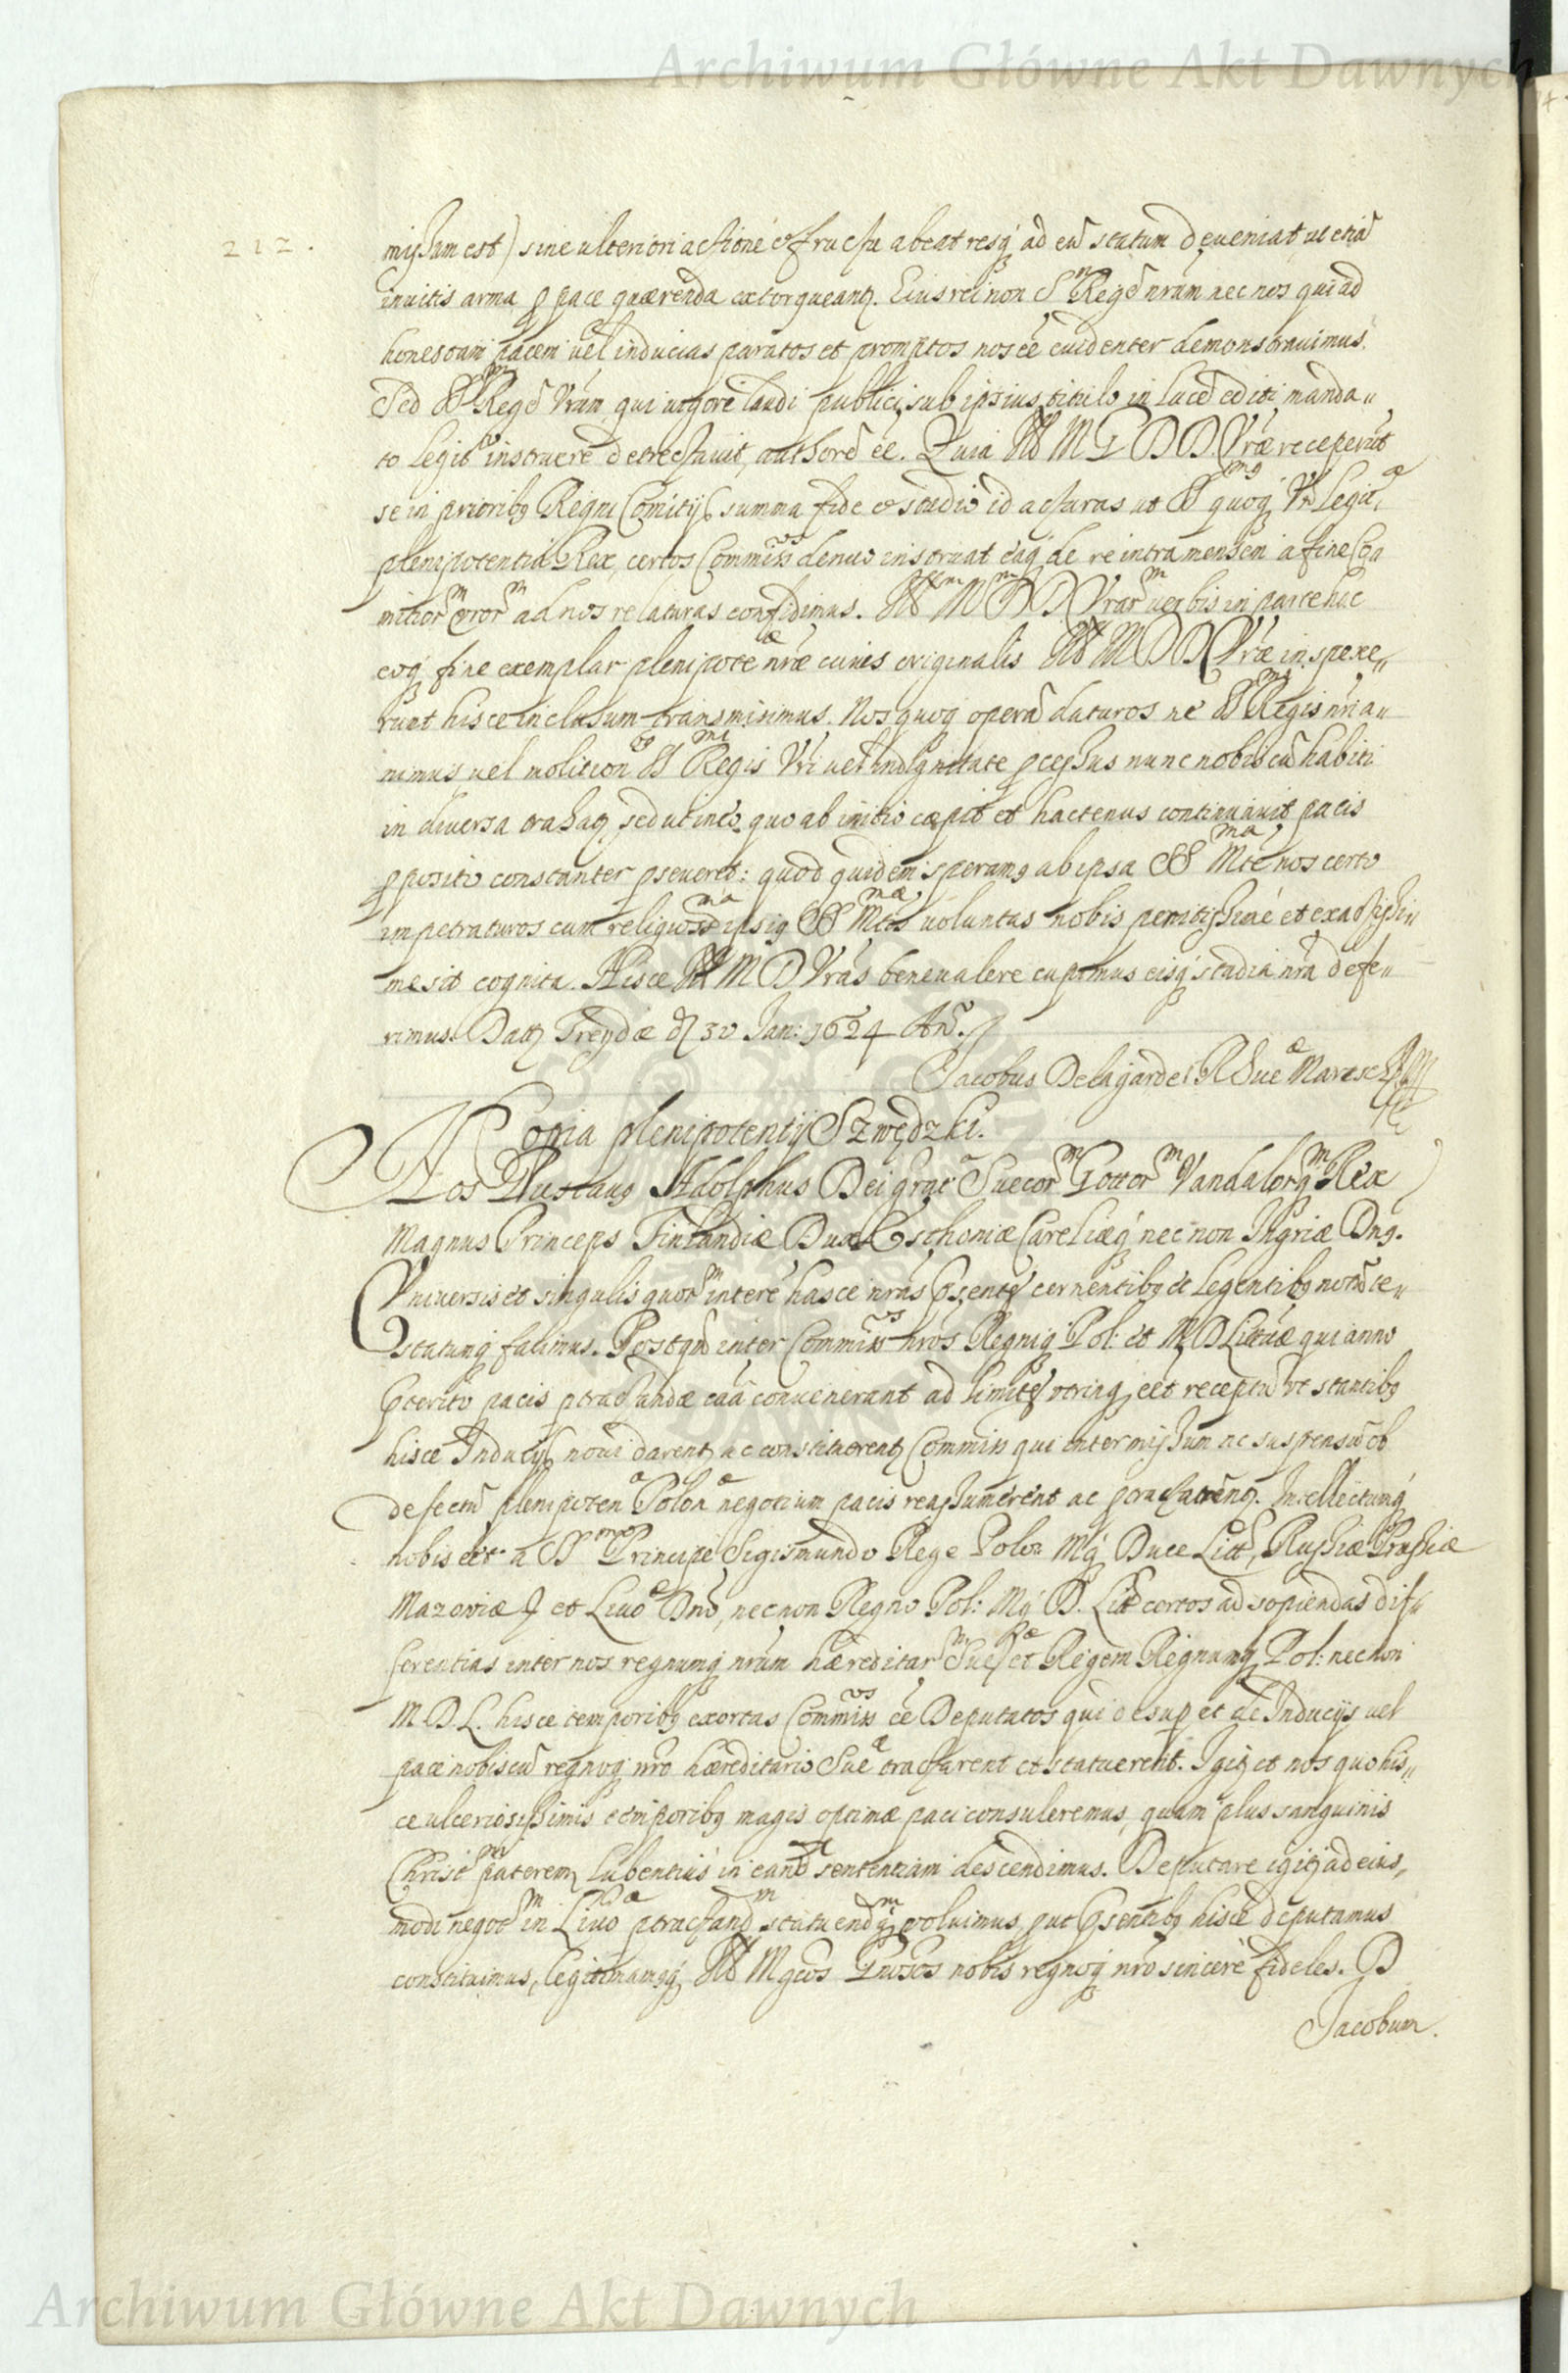 Archiwum Główne Akt Dawnych
212.
missum est) sine ulteriori actione et fructu abeat resq; ad eū statum deveniat ut etiā
invitis arma p pace quærenda extorqueant. Eius rei non S Regē nrūm nec nos qui ad
honestam pacem vel inducias paratos et promptos nos eē evidenter demonstravimus.
Sed S Regē Vrūm qui vigore laudi publici, sub ipsius titulo in lucē editi manda„
to legit instruere detrectavit, authorē eē. Quia Ill M G D D Vræ receperūt
se in prioribq Regni Comitijs summa fide et studio id acturas ut S quoq; Vr Legit
plenipotentia Rex, certos Commiss denuo instruat eaq; de re intra mensem a fine Co„
mitior eror ad nos relaturas confidimus. Ill M D D Vrar verbis in parte hac
eoq; fine exemplar plenipote nræ cuius originalis Ill M D D Vræ inspexe„
runt hisce inclusum transmisimus. Nos quoq operā daturos ne S Regis nri a„
nimus vel molition S Regis Vri vel indignitate pcessus nunc nobiscū habiti
in diversa trahat, sed ut in eo quo ab initio cæpit et hactenus continuavit pacis
pposito constanter pseveret: quod quidem speramq ab ipsa S Mte nos certo
impetraturos cum religiosa ipsiq S Mtis voluntas nobis penitissime et exactissi„
me sit cognita. Hisce Ill M D Vras bene valere cupimus eisq; studia nra defe„
rimus. Dat Treydæ d 30 Jan: 1624 An.
Jacobus Delagardei R Sue Maresc
Copia plenipotentij Szwędzki.
Nos Gustavq Adolphus Dei grat Suecor Gottor Vandalorq Rex
Magnus Princeps Finlandiæ Dux Esthoniæ Careliæq; nec non Ingriæ Dnq.
Universis et singulis quor intere hasce nras psentes cernentibq et legentibq notū te„
statumq facimus. Postqm inter Commiss nros Regniq Pol: et M D Lituæ qui anno
pterito pacis ptractandæ caā convenerant ad limites utrinq eēt receptū ut stantibq
hisce Inducijs novi darent ac constituerent Commiss qui intermissum ac suspensū ob
defectū plenipoten Polon negotium pacis reassumerent ac ptractarent. Intellectumq;
nobis eēt a S Principe Sigismundo Rege Polon Mq; Duce Litt, Russiæ Prussiæ
Mazoviæ et Livo Dno, nec non Regno Pol: Mq; D. Litt certos ad sopiendas dif„
ferentias inter nos regnumq; nrum hæreditar Sue et Regem Regnumq Pol: nec non
M. D. L. hisce temporibq exortas Commiss eē Deputatos qui desup et de Inducijs vel
pace nobiscū regnoq; nro hæreditario Sue tractarent et statuerent. Igit et nos quo his„
ce ulceriosissimis temporibq magis optimæ paci consuleremus, quam plus sanguinis
Christ paterem lubentius in eand sententiam descendimus. Deputare igit ad eius„
modi negot in Livo ptractand statuendq; voluimus, put psentibq hisce deputamus
constituimus, legitimamq; Ill Mgcos Gnosos nobis regnoq; nro sincere fideles. D
Jacobum.
Archiwum Główne Akt Dawnych